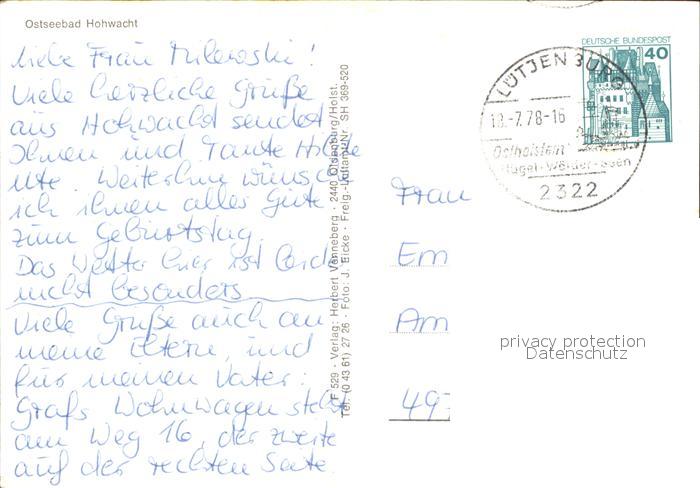 Ostseebad Hohwacht
Liebe Frau Milewski!
Viele herzliche Grüße
aus Hohwacht sendet
Ihnen und Tante
Weiterhin wünsche
ich ihnen alles Gute
zum Geburtstag.
Das Wetter hier ist leider
nicht besonders
Viele Grüße auch an
meine Eltern, und
für meinen Vater:
Grafs Wohnwagen steht
am Weg 16, der zweite
auf der rechten Seite.
F 529 · Verlag: Herbert Venneberg · 2440 Oldenburg/Holst.
Tel. (0 43 61) 27 26 · Foto: J. Eicke · Freig.-Luftamt-Nr. SH 369-520
DEUTSCHE BUNDESPOST
40
LÜTJENBURG
-7.78-16
Ostholstein
Hügel-Wälder-Seen
2322
Frau
Em
Am
49
privacy protection
Datenschutz